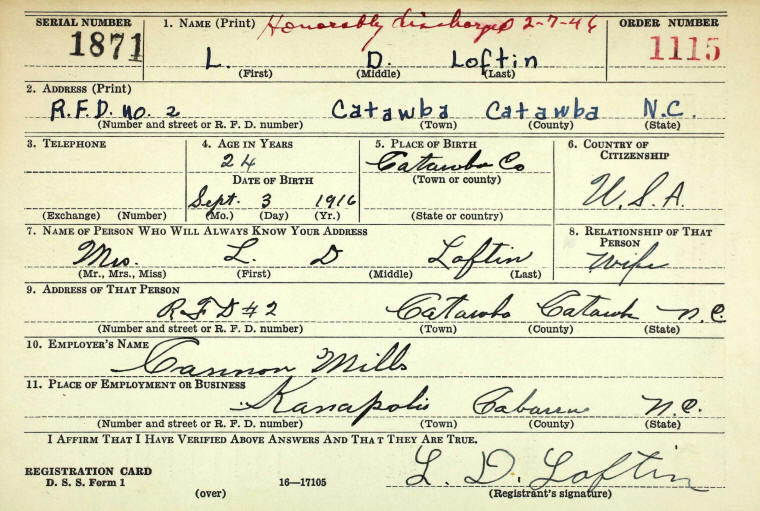 SERIAL NUMBER 1. NAME (Print) Honorably discharged 2-7-46 ORDER NUMBER
1871 L. D. Loftin 1115
(First) (Middle) (Last)
2. ADDRESS (Print)
R.F.D. No. 2 Catawba Catawba N.C.
(Number and street or R. F. D. number) (Town) (County) (State)
3. TELEPHONE 4. AGE IN YEARS 5. PLACE OF BIRTH 6. COUNTRY OF CITIZENSHIP
24 Catawba Co
DATE OF BIRTH (Town or county)
Sept. 3 1916 U.S.A.
(Exchange) (Number) (Mo.) (Day) (Yr.) (State or country)
7. NAME OF PERSON WHO WILL ALWAYS KNOW YOUR ADDRESS 8. RELATIONSHIP OF THAT PERSON
Mrs. L. D Loftin Wife
(Mr., Mrs., Miss) (First) (Middle) (Last)
9. ADDRESS OF THAT PERSON
R.F D # 2 Catawba Catawba N.C.
(Number and street or R. F. D. number) (Town) (County) (State)
10. EMPLOYER'S NAME
Cannon Mills
11. PLACE OF EMPLOYMENT OR BUSINESS
Kanapolis Cabarrus N.C.
(Number and street or R. F. D. number) (Town) (County) (State)
I AFFIRM THAT I HAVE VERIFIED ABOVE ANSWERS AND THAT THEY ARE TRUE.
REGISTRATION CARD L. D. Loftin
D. S. S. Form 1 (over) 16—17105 (Registrant's signature)